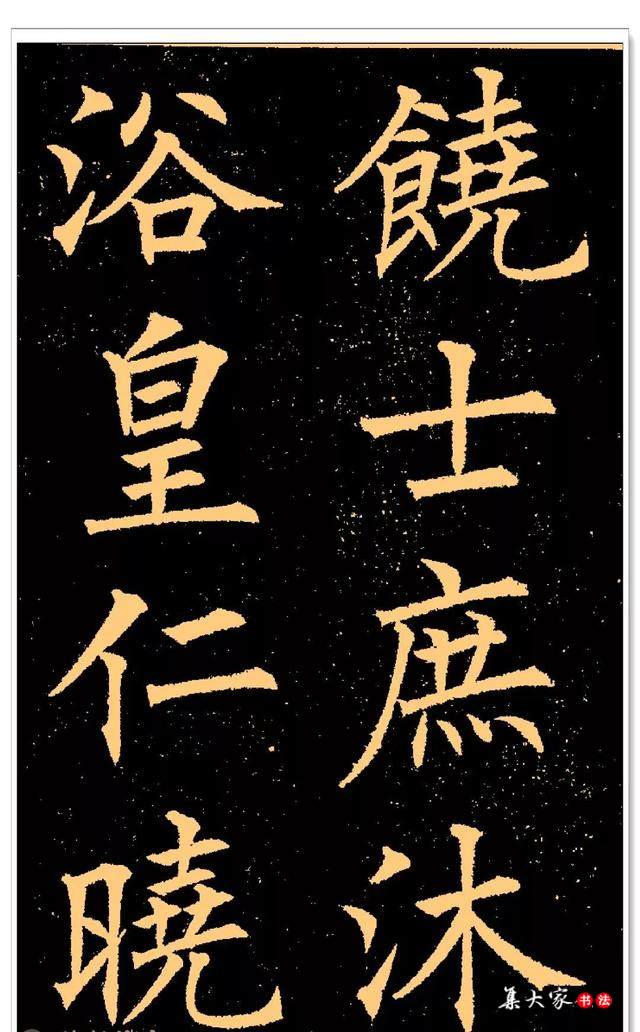 饒士庶沐
浴皇仁曉
集大家书法